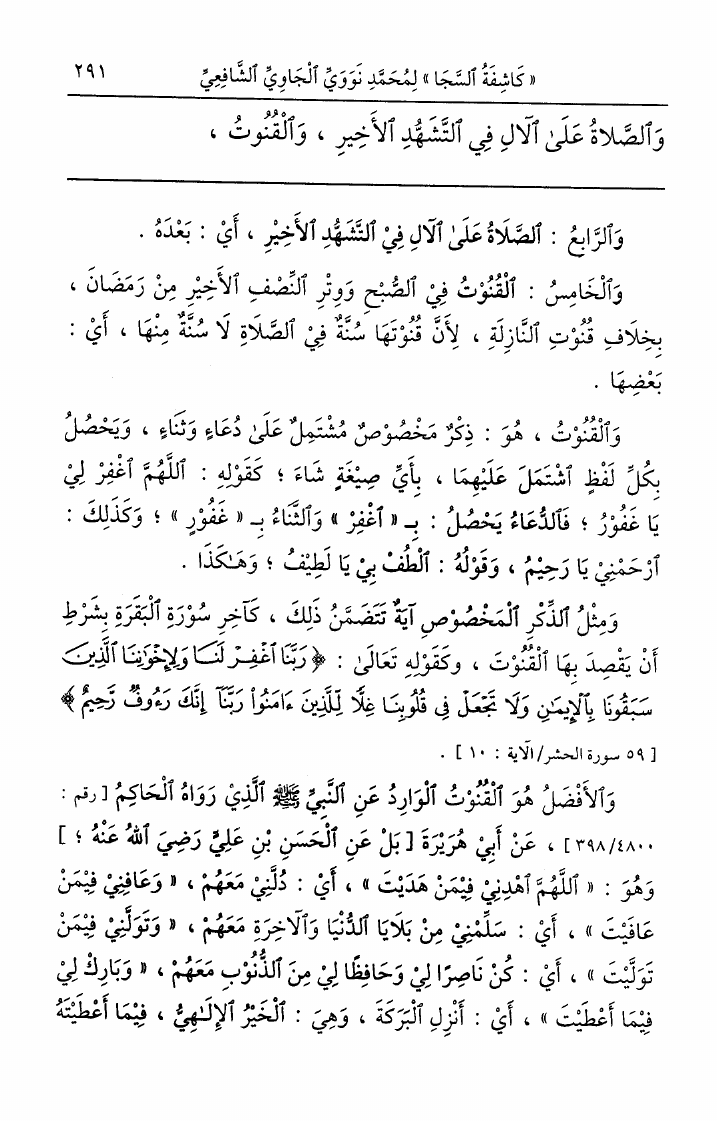 « كَاشِفَةُ ٱلسَّجَا » لِمُحَمَّدِ نَوَوَيِّ ٱلْجَاوِيِّ ٱلشَّافِعِيِّ ٢٩١
وَٱلصَّلاةُ عَلَىٰ ٱلآلِ فِي ٱلتَّشَهُّدِ ٱلأَخِيرِ ، وَٱلْقُنُوتُ ،
وَٱلرَّابِعُ : ٱلصَّلَاةُ عَلَىٰ ٱلآلِ فِيْ ٱلتَّشَهُّدِ ٱلأَخِيْرِ ، أَيْ : بَعْدَهُ .
وَٱلْخَامِسُ : ٱلْقُنُوْتُ فِيْ ٱلصُّبْحِ وَوِتْرِ ٱلنِّصْفِ ٱلأَخِيْرِ مِنْ رَمَضَانَ ،
بِخِلَافِ قُنُوْتِ ٱلنَّازِلَةِ ، لِأَنَّ قُنُوْتَهَا سُنَّةٌ فِيْ ٱلصَّلَاةِ لَا سُنَّةٌ مِنْهَا ، أَيْ :
بَعْضِهَا .
وَٱلْقُنُوْتُ ، هُوَ : ذِكْرٌ مَخْصُوْصٌ مُشْتَمِلٌ عَلَىٰ دُعَاءٍ وَثَنَاءٍ ، وَيَحْصُلُ
بِكُلِّ لَفْظٍ ٱشْتَمَلَ عَلَيْهِمَا ، بِأَيِّ صِيْغَةٍ شَاءَ ؛ كَقَوْلِهِ : ٱللَّهُمَّ ٱغْفِرْ لِيْ
يَا غَفُوْرُ ؛ فَٱلدُّعَاءُ يَحْصُلُ : بِـ « ٱغْفِرْ » وَٱلثَّنَاءُ بِـ « غَفُوْرٍ » ؛ وَكَذَلِكَ :
ٱرْحَمْنِيْ يَا رَحِيْمُ ، وَقَوْلُهُ : ٱلْطُفْ بِيْ يَا لَطِيْفُ ؛ وَهَـٰكَذَا .
وَمِثْلُ ٱلذِّكْرِ ٱلْمَخْصُوْصِ آيَةٌ تَتَضَمَّنُ ذَلِكَ ، كَآخِرِ سُوْرَةِ ٱلْبَقَرَةِ بِشَرْطِ
أَنْ يَقْصِدَ بِهَا ٱلْقُنُوْتَ ، وَكَقَوْلِهِ تَعَالَىٰ : ﴿ رَبَّنَا ٱغْفِرْ لَنَا وَلِإِخْوَٰنِنَا ٱلَّذِينَ
سَبَقُونَا بِٱلْإِيمَٰنِ وَلَا تَجْعَلْ فِى قُلُوبِنَا غِلًّا لِّلَّذِينَ ءَامَنُوا۟ رَبَّنَآ إِنَّكَ رَءُوفٌ رَّحِيمٌ ﴾
[ ٥٩ سورة الحشر/الآية : ١٠ ] .
وَٱلأَفْضَلُ هُوَ ٱلْقُنُوْتُ ٱلْوَارِدُ عَنِ ٱلنَّبِيِّ ﷺ ٱلَّذِيْ رَوَاهُ ٱلْحَاكِمُ [ رقم :
٣٩٨/٤٨٠٠ ] ، عَنْ أَبِيْ هُرَيْرَةَ [ بَلْ عَنِ ٱلْحَسَنِ بْنِ عَلِيٍّ رَضِيَ ٱللهُ عَنْهُ ؛ ]
وَهُوَ : « ٱللَّهُمَّ ٱهْدِنِيْ فِيْمَنْ هَدَيْتَ » ، أَيْ : دُلَّنِيْ مَعَهُمْ ، « وَعَافِنِيْ فِيْمَنْ
عَافَيْتَ » ، أَيْ : سَلِّمْنِيْ مِنْ بَلَايَا ٱلدُّنْيَا وَٱلآخِرَةِ مَعَهُمْ ، « وَتَوَلَّنِيْ فِيْمَنْ
تَوَلَّيْتَ » ، أَيْ : كُنْ نَاصِرًا لِيْ وَحَافِظًا لِيْ مِنَ ٱلذُّنُوْبِ مَعَهُمْ ، « وَبَارِكْ لِيْ
فِيْمَا أَعْطَيْتَ » ، أَيْ : أَنْزِلِ ٱلْبَرَكَةَ ، وَهِيَ : ٱلْخَيْرُ ٱلإِلَـٰهِيُّ ، فِيْمَا أَعْطَيْتَهُ